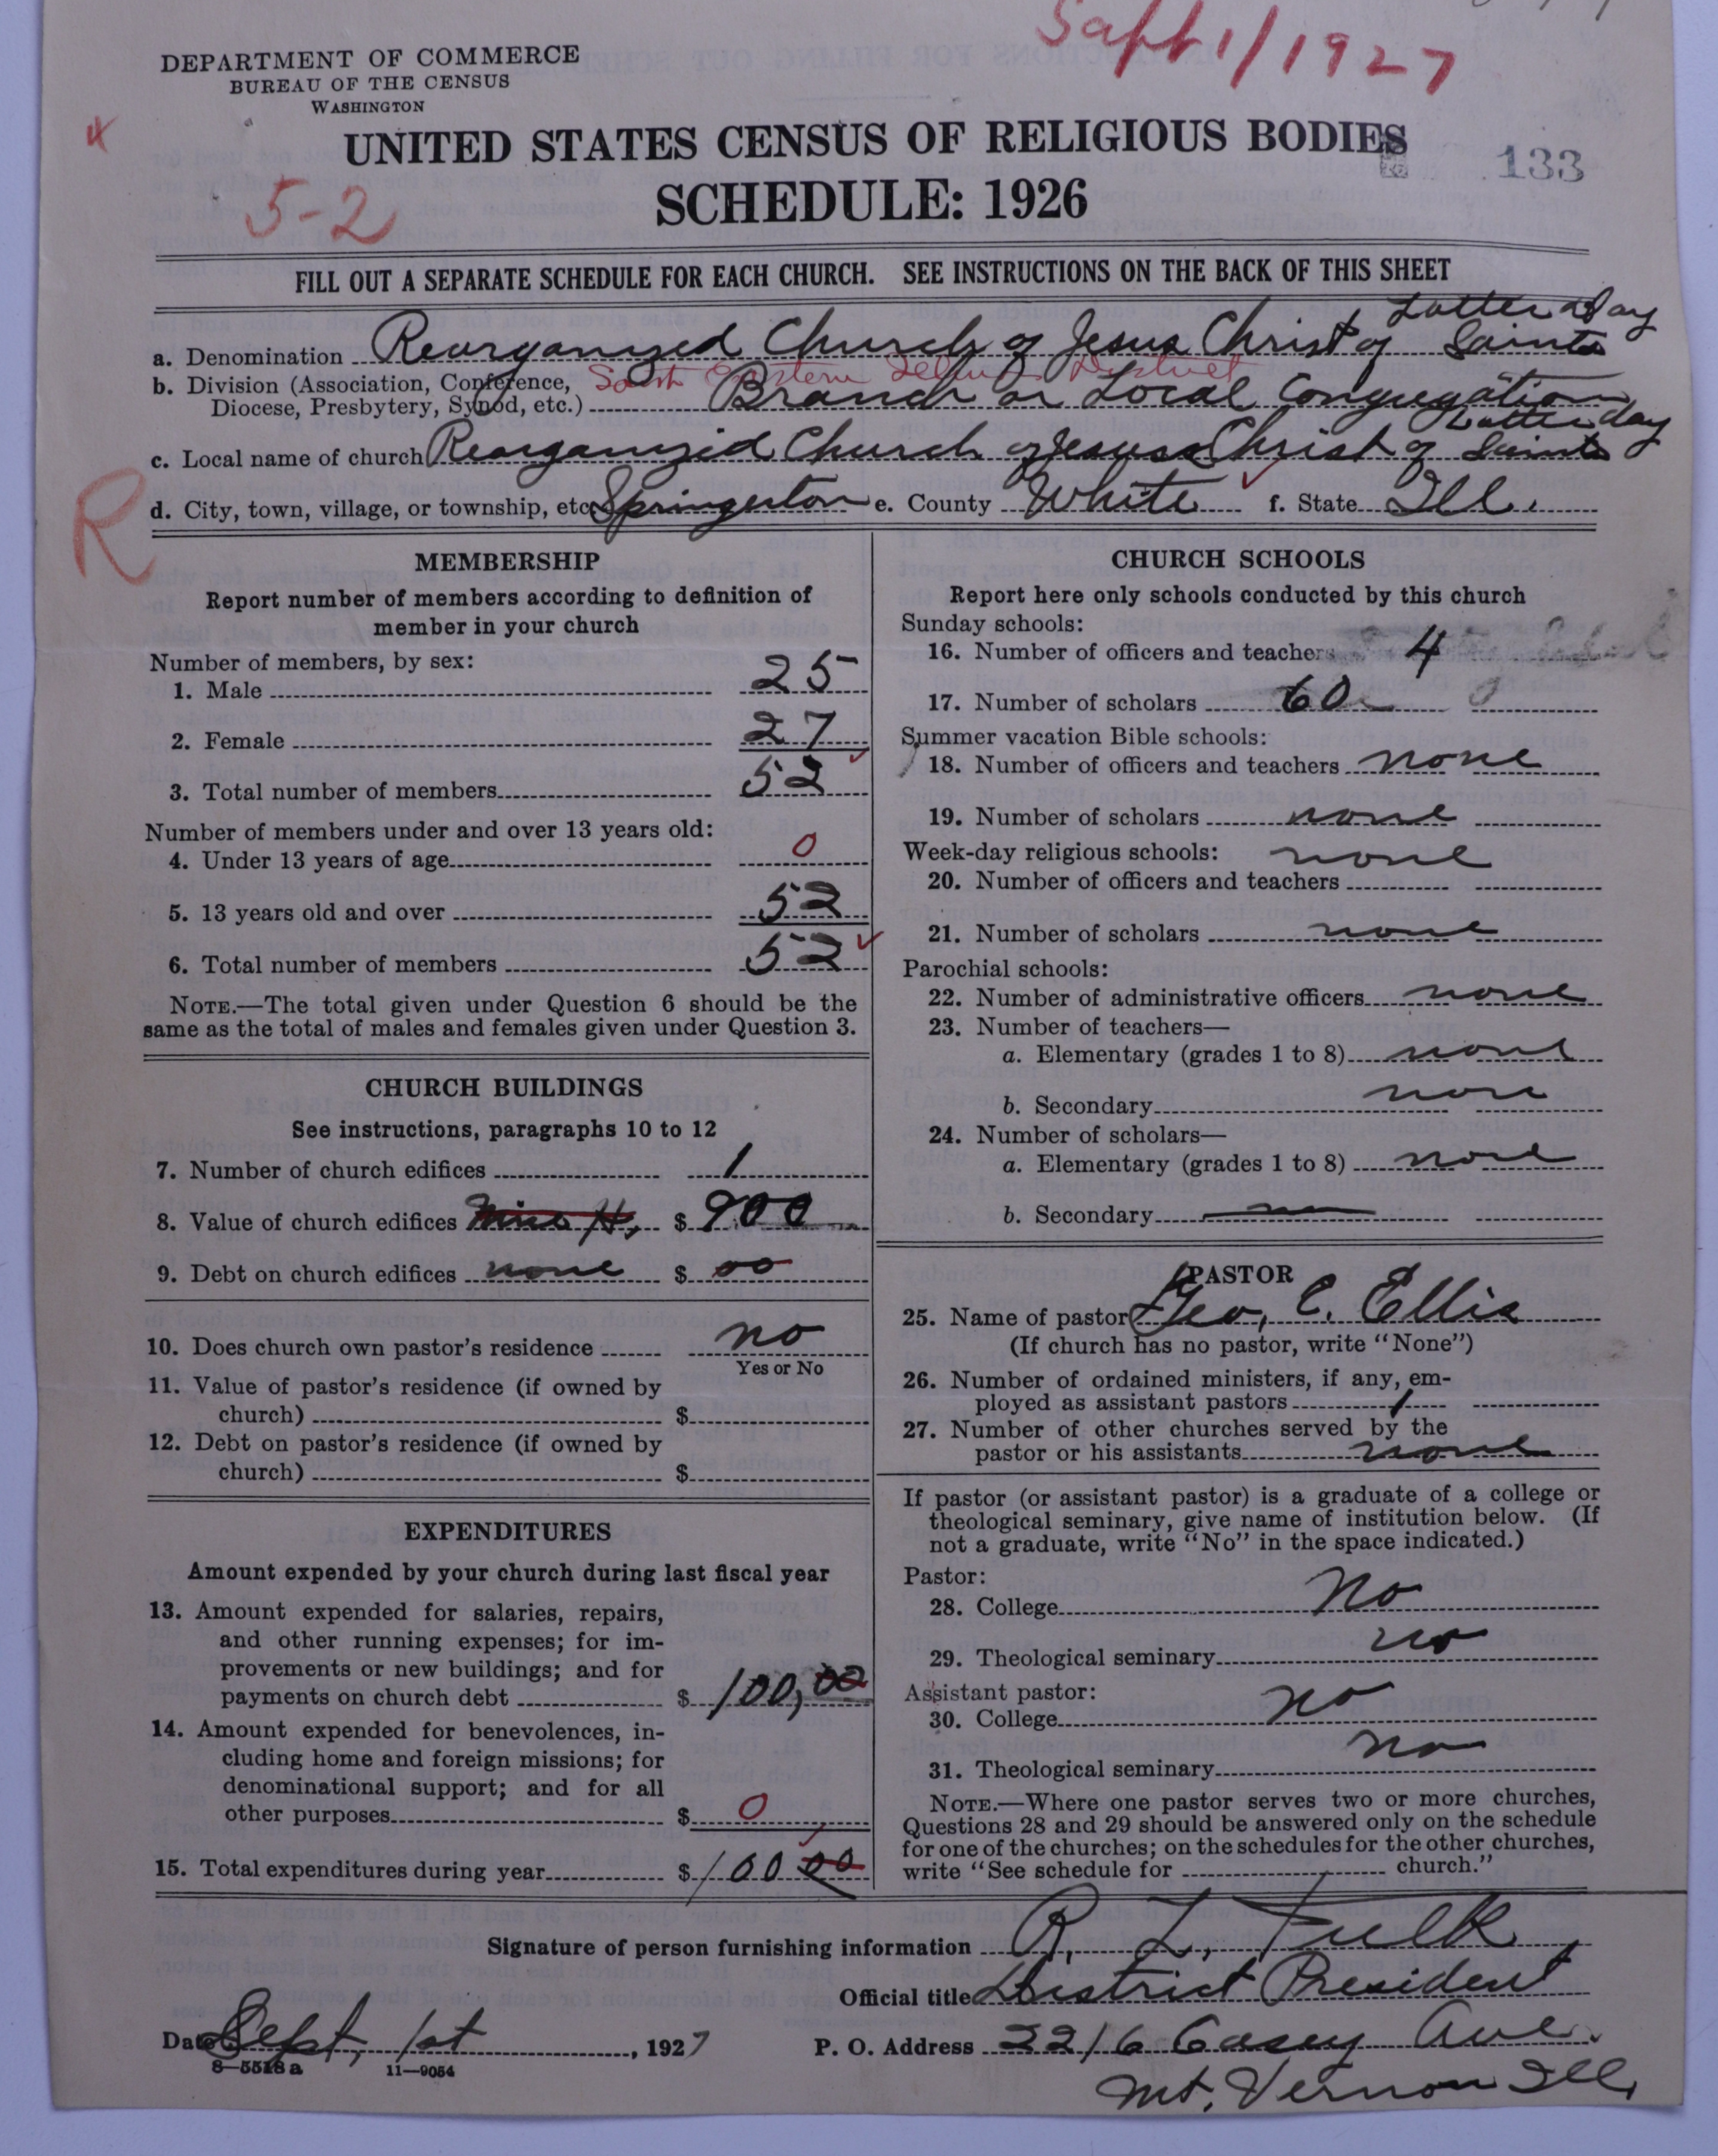 Sept 1/1927
DEPARTMENT OF COMMERCE
BUREAU OF THE CENSUS
WASHINGTON
UNITED STATES CENSUS OF RELIGIOUS BODIES
133
5-2
SCHEDULE: 1926
FILL OUT A SEPARATE SCHEDULE FOR EACH CHURCH. SEE INSTRUCTIONS ON THE BACK OF THIS SHEET
a. Denomination Reorganized Church of Jesus Christ of Latter Day Saints
b. Division (Association, Conference, South Eastern Illinois District
Diocese, Presbytery, Synod, etc.) Branch or Local Congregation
c. Local name of church Reorganized Church of Jesus Christ of Latter day Saints
R
d. City, town, village, or township, etc. Springerton e. County White f. State Ill.
MEMBERSHIP
Report number of members according to definition of
member in your church
Number of members, by sex:
1. Male 25
2. Female 27
3. Total number of members 52
Number of members under and over 13 years old:
4. Under 13 years of age 0
5. 13 years old and over 52
6. Total number of members 52
NOTE.—The total given under Question 6 should be the
same as the total of males and females given under Question 3.
CHURCH BUILDINGS
See instructions, paragraphs 10 to 12
7. Number of church edifices 1
8. Value of church edifices $ 900
9. Debt on church edifices none $ 00
10. Does church own pastor's residence no
Yes or No
11. Value of pastor's residence (if owned by
church) $
12. Debt on pastor's residence (if owned by
church) $
EXPENDITURES
Amount expended by your church during last fiscal year
13. Amount expended for salaries, repairs,
and other running expenses; for im-
provements or new buildings; and for
payments on church debt $ 100,00
14. Amount expended for benevolences, in-
cluding home and foreign missions; for
denominational support; and for all
other purposes $ 0
15. Total expenditures during year $ 100 00
CHURCH SCHOOLS
Report here only schools conducted by this church
Sunday schools:
16. Number of officers and teachers 4
17. Number of scholars 60
Summer vacation Bible schools:
18. Number of officers and teachers none
19. Number of scholars none
Week-day religious schools:
20. Number of officers and teachers none
21. Number of scholars none
Parochial schools:
22. Number of administrative officers none
23. Number of teachers—
a. Elementary (grades 1 to 8) none
b. Secondary none
24. Number of scholars—
a. Elementary (grades 1 to 8) none
b. Secondary
PASTOR
25. Name of pastor Geo, C. Ellis
(If church has no pastor, write "None")
26. Number of ordained ministers, if any, em-
ployed as assistant pastors 1
27. Number of other churches served by the
pastor or his assistants none
If pastor (or assistant pastor) is a graduate of a college or
theological seminary, give name of institution below. (If
not a graduate, write "No" in the space indicated.)
Pastor:
28. College No
29. Theological seminary no
Assistant pastor:
30. College no
31. Theological seminary no
NOTE.—Where one pastor serves two or more churches,
Questions 28 and 29 should be answered only on the schedule
for one of the churches; on the schedules for the other churches,
write "See schedule for church."
Signature of person furnishing information R. L. Fulk
Official title District President
Date Sept, 1st, 1927 P. O. Address 2216 Casey Ave.
8—5518a 11—9054
Mt. Vernon Ill,